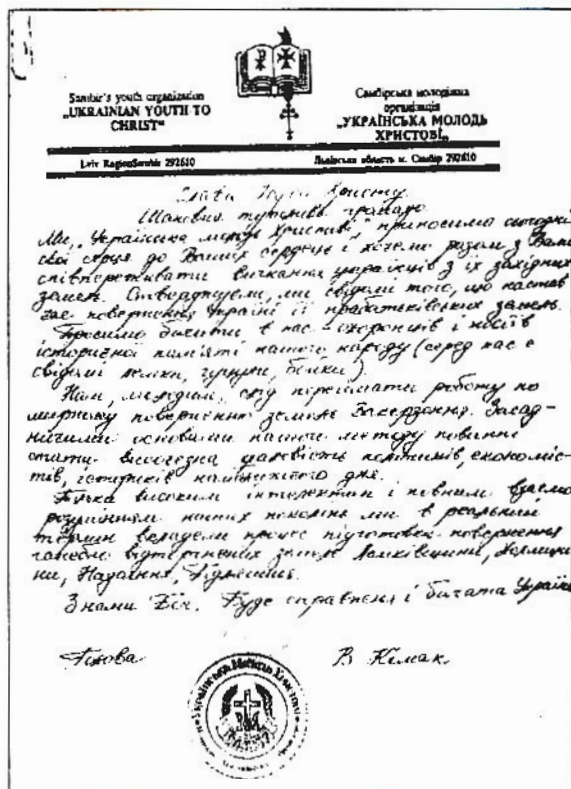 Sambir's youth organization
„UKRAINIAN YOUTH TO
CHRIST“
Самбірська молодіжна
організація
„УКРАЇНСЬКА МОЛОДЬ
ХРИСТОВІ„
Lviv RegionSambir 292610
Львівська область м. Самбір 292610
Слава Ісусу Христу
Шановна громадо
Ми, „Українська молодь Христові", приносимо сьогодні
свої серця до Ваших сердець і хочемо разом з Вами
співпереживати вигнання українців з їх західних
земель. Стверджуєм, ми свідомі того, що настав
час повернення Україні її прабатьківських земель.
Просимо бачити в нас охоронців і носіїв
історичної пам'яті нашого народу (серед нас є
свідомі лемки, гуцули, бойки).
Нам, молодим, слід переймати роботу по
мирному поверненню земель Закерзоння. Засад-
ничими основами нашого методу повинні
стати фаховість політиків, економіс-
тів, істориків дня.
Тільки високим інтелектом і повним взаємо
розумінням наших поколінь ми в реальний
термін процес підготовки повернення
відторгнених земель Лемківщини, Холмщи
ни, Надсяння, Підляшшя.
З нами Бог. Буде справжня і багата Україна
Голова В Кімак